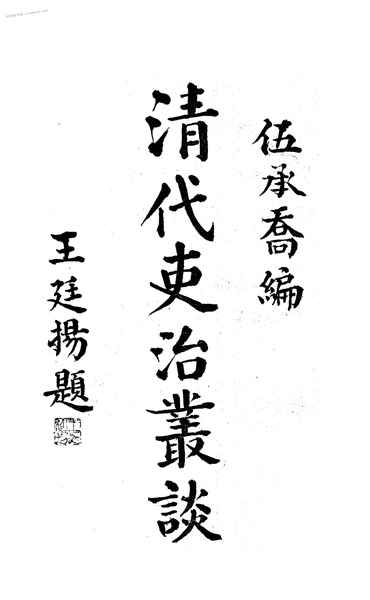 伍承喬編
清代吏治叢談
王廷揚題